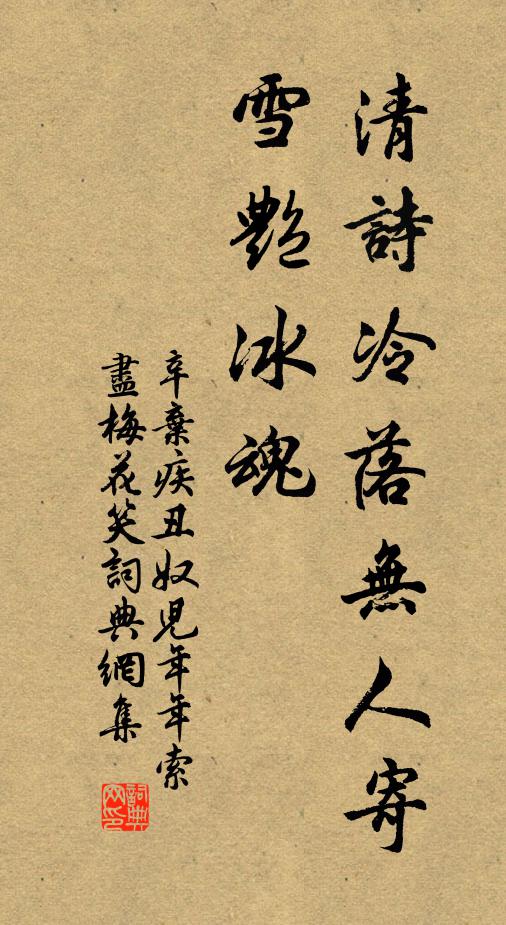 清詩冷落無人寄
雪艷冰魂
辛棄疾丑奴兒年年索
盡梅花笑詞典網集
詞典网印